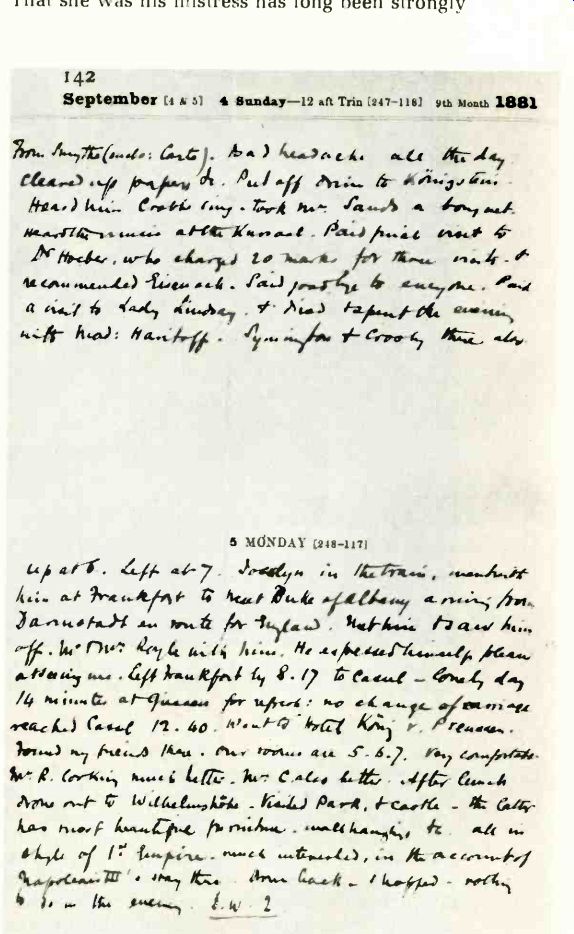 That she was his mistress has long been strongly
142
September [4 & 5] 4 Sunday—12 aft Trin [247-118] 9th Month 1881
From Smythe (enclo: Carte). Bad headache all the day
cleared up papers &c. Put off drive to Königstein.
Heard Miss Crosbie sing. took Mrs. Sands a bouquet.
Heard the music at the Kursaal. Paid final visit to
Dr Hoeber, who charged 20 marks for three visits. &
recommended Eisenach. Said goodbye to everyone. Paid
a visit to Lady Lindsay. & dined & spent the evening
with Mad: Haritoff. Symington & Crosby there also
5 MONDAY [248-117]
up at 6. Left at 7. Jocelyn in the train, went with
him at Frankfort to meet Duke of Albany arriving from
Darmstadt en route for England. Met him & saw him
off. Mr & Mrs Royle with him. He expressed himself pleased
at seeing me. Left Frankfort by 8.17 to Cassel – lonely day
14 minutes at for refresh: no change of carriage
reached Cassel 12.40. Went to Hotel König v. Preussen.
Found my friends there. Our rooms are 5.6.7. very comfortable.
Mr R. looking much better. Mrs C also better. After lunch
drove out to Wilhelmshöhe. Visited Park, & castle – the latter
has most beautiful furniture. wallhangings &c. all in
style of 1st Empire. much interested, in the account of
Napoleon III's stay there. Drove back – shopped – nothing
to do in the evening. E.W. 2